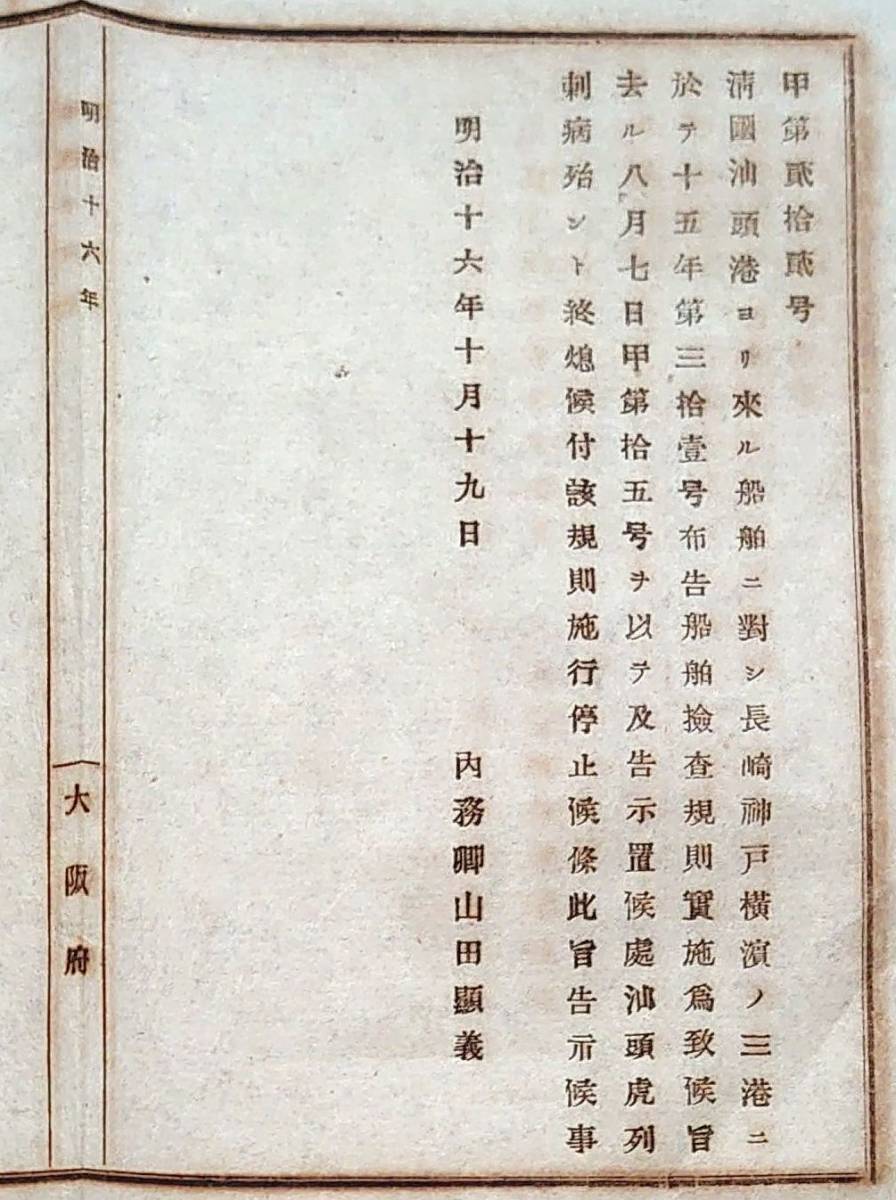 甲第貳拾貳号
淸國汕頭港ヨリ來ル船舶ニ對シ長崎神戸横濱ノ三港ニ
於テ十五年第三拾壹号布告船舶撿査規則實施爲致候旨
去ル八月七日甲第拾五号ヲ以テ及告示置候處汕頭虎列
刺病殆ント終熄候付該規則施行停止候條此旨告示候事
明治十六年十月十九日　内務卿山田顯義
明治十六年
大阪府